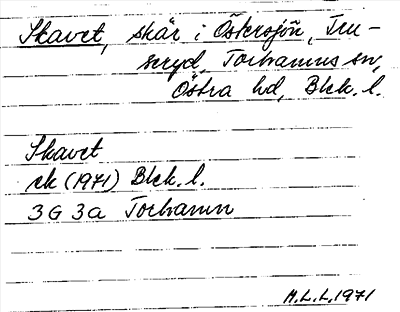 Skavet, skär i Östersjön, Tru-
seryd, Torhamns sn,
Östra hd, Blek. l.
Skavet
ek (1971) Blek. l.
3G 3a Torhamn
H.L.L. 1971